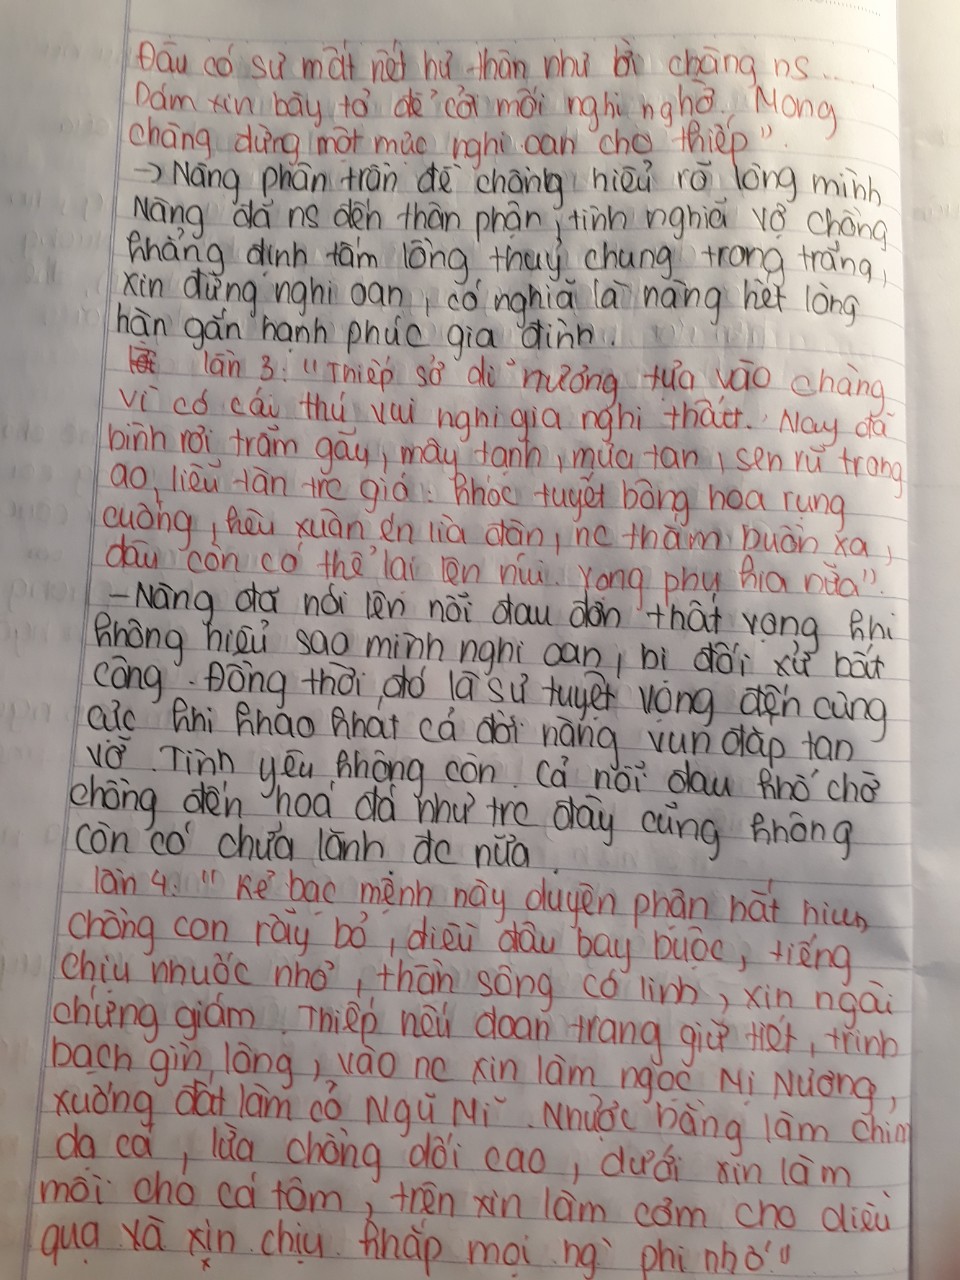 Đâu có sự mất nết hư thân như bì chàng ns...
Dám xin bày tỏ để cởi mối nghi ngờ. Mong
chàng đừng một mực nghi oan cho thiếp".
→ Nàng phân trần để chồng hiểu rõ lòng mình
Nàng đã ns đến thân phận, tình nghĩa vợ chồng
khẳng định tấm lòng thuỷ chung trong trắng,
xin đừng nghi oan, có nghĩa là nàng hết lòng
hàn gắn hạnh phúc gia đình.
lần 3: "Thiếp sở dĩ nương tựa vào chàng
vì có cái thú vui nghi gia nghi thất. Nay đã
bình rơi trâm gãy, mây tạnh, mưa tan, sen rũ trong
ao, liễu tàn trc gió. khóc tuyết bông hoa rụng
cuống, kêu xuân én lìa đàn, nc thẳm buồn xa,
đâu còn có thể lại lên núi Vọng phu kia nữa".
- Nàng đã nói lên nỗi đau đớn thất vọng khi
không hiểu sao mình nghi oan, bị đối xử bất
công. Đồng thời đó là sự tuyệt vọng đến cùng
cực khi khao khát cả đời nàng vun đắp tan
vỡ. Tình yêu không còn. Cả nỗi đau khổ chờ
chồng đến hoá đá như trc đây cũng không
còn có chữa lành đc nữa.
lần 4: "Kẻ bạc mệnh này duyên phận hất hiu,
chồng con rẫy bỏ, điều đâu bay buộc, tiếng
chịu nhuốc nhơ, thần sông có linh, xin ngài
chứng giám. Thiếp nếu đoan trang giữ tiết, trinh
bạch gìn lòng, vào nc xin làm ngọc Mị Nương,
xuống đất làm cỏ Ngu Mĩ. Nhược bằng làm chim
dạ cá, lừa chồng dối cao, dưới xin làm
mồi cho cá tôm, trên xin làm cơm cho diều
quạ và xin chịu khắp mọi ng phỉ nhổ"